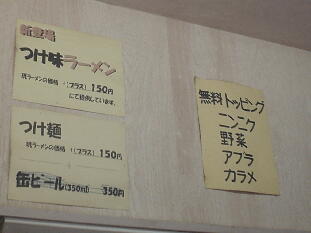 新登場
つけ味ラーメン
現ラーメンの価格 +(プラス) 150円
にて提供しています。
つけ麺
現ラーメンの価格 +(プラス) 150円
缶ビール(350ml) 350円
無料トッピング
ニンニク
野菜
アブラ
カラメ